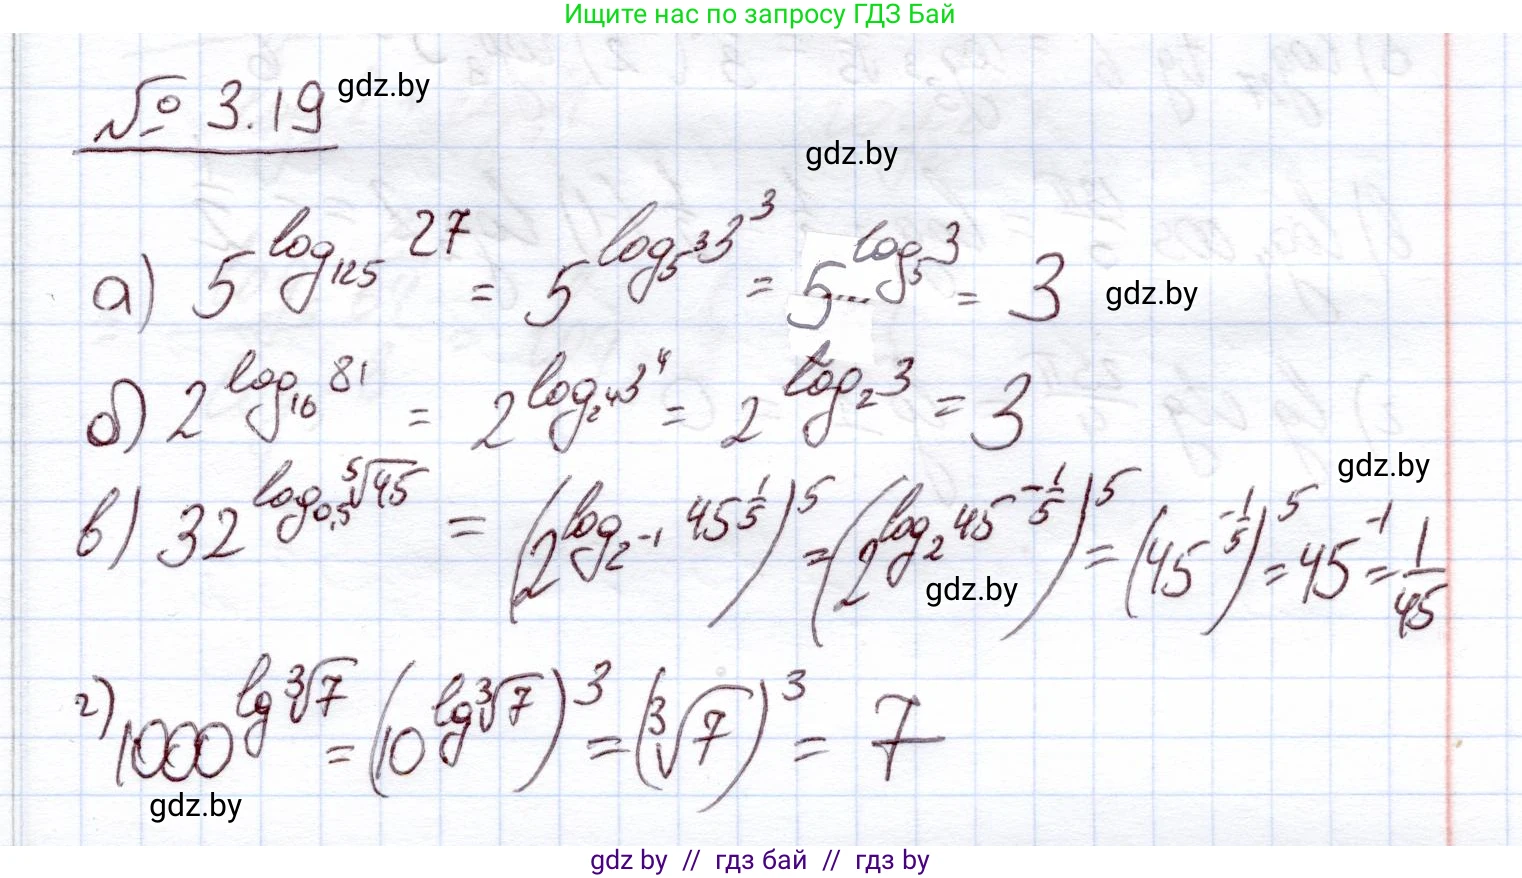 Ищите нас по запросу ГДЗ Бай
№ 3.19 gdz.by
gdz.by
а) 5^{log_{125} 27} = 5^{log_{5^3} 3^3} = 5^{log_5 3} = 3 gdz.by
б) 2^{log_{16} 81} = 2^{log_{2^4} 3^4} = 2^{log_2 3} = 3
gdz.by
в) 32^{log_{0,5} \sqrt[5]{45}} = (2^{log_{2^{-1}} 45^{1/5}})^5 = (2^{log_2 45^{-1/5}})^5 = (45^{-1/5})^5 = 45^{-1} = 1/45
gdz.by
г) 1000^{lg \sqrt[3]{7}} = (10^{lg \sqrt[3]{7}})^3 = (\sqrt[3]{7})^3 = 7
gdz.by
gdz by // гдз бай // гдз by